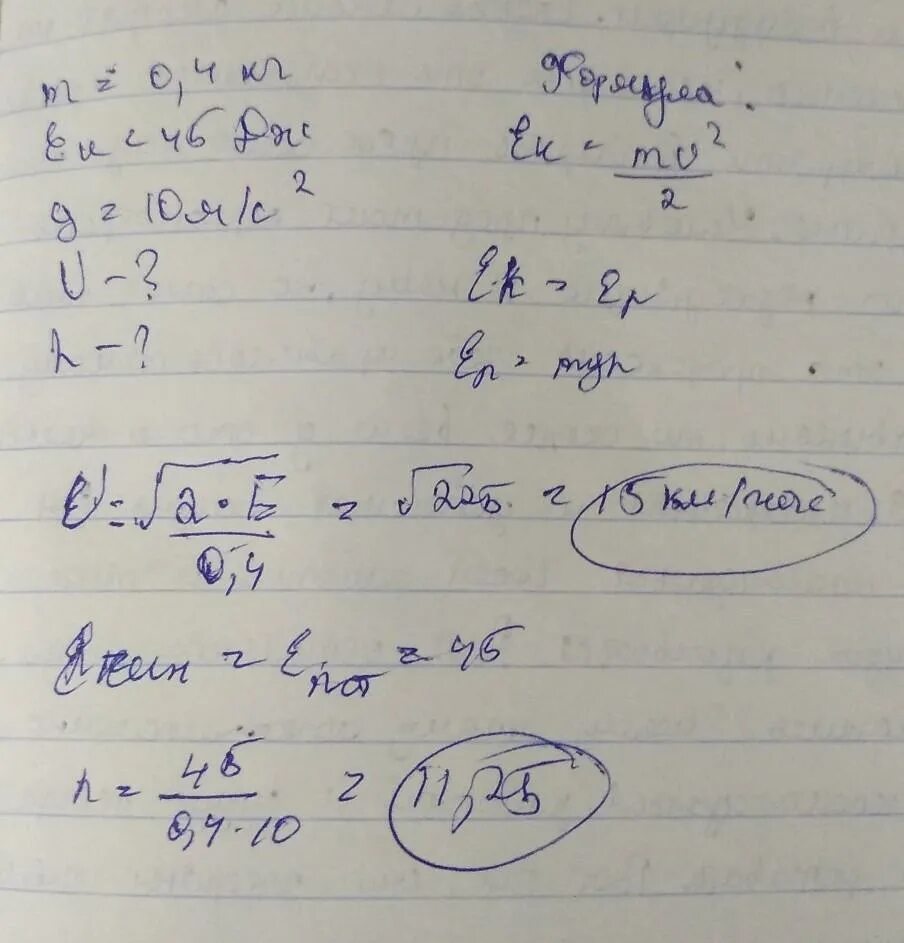 m = 0,4 кг
Eк = 45 Дж
g = 10 м/с²
U - ?
h - ?
Формула:
Eк = mv²/2
Eк = Eр
Eп = mgh
U = √(2·E/0,4) = √225 = 15 км/час
Eкин = Eпот = 45
h = 45/0,4·10 = 11,25